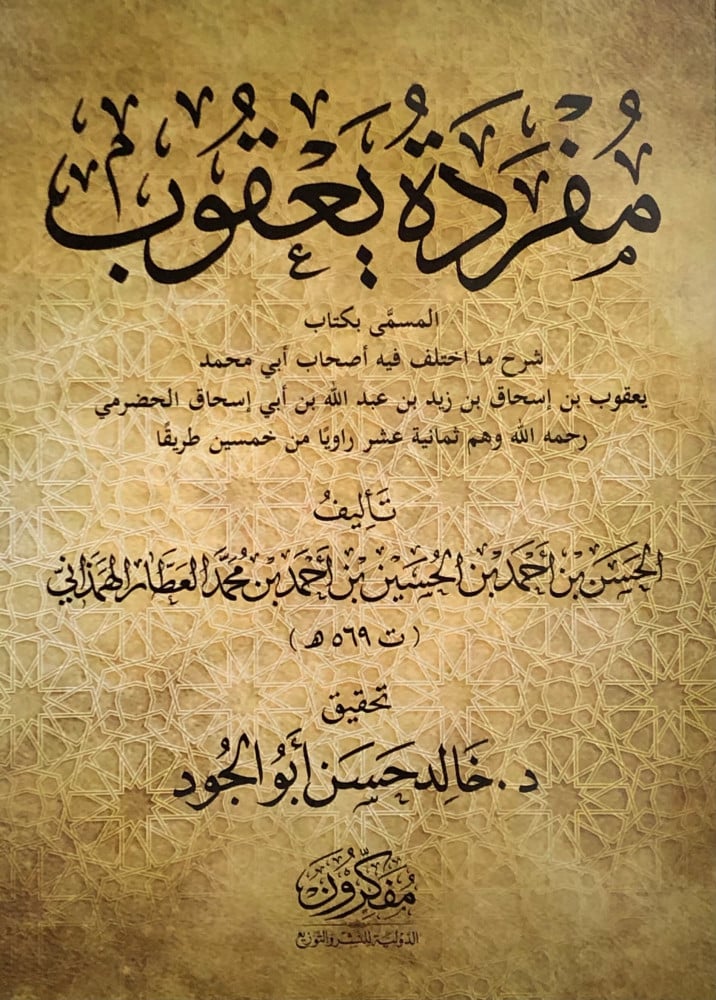 مُفْرَدَةُ يَعْقُوب
المسمَّى بكتاب
شرح ما اختلف فيه أصحاب أبي محمد
يعقوب بن إسحاق بن زيد بن عبد الله بن أبي إسحاق الحضرمي
رحمه الله وهم ثمانية عشر راويًا من خمسين طريقًا
تَأليفُ
الحَسَن بن أَحْمَد بن الحُسَيْن بْن أَحْمَد بْن مُحَمَّد العَطَّار الهَمَذَاني
(ت ٥٦٩ هـ)
تحقيق
د. خَالِد حَسَن أَبُو الجُود
مُفَكِّرُونَ
الدولية للنشر والتوزيع